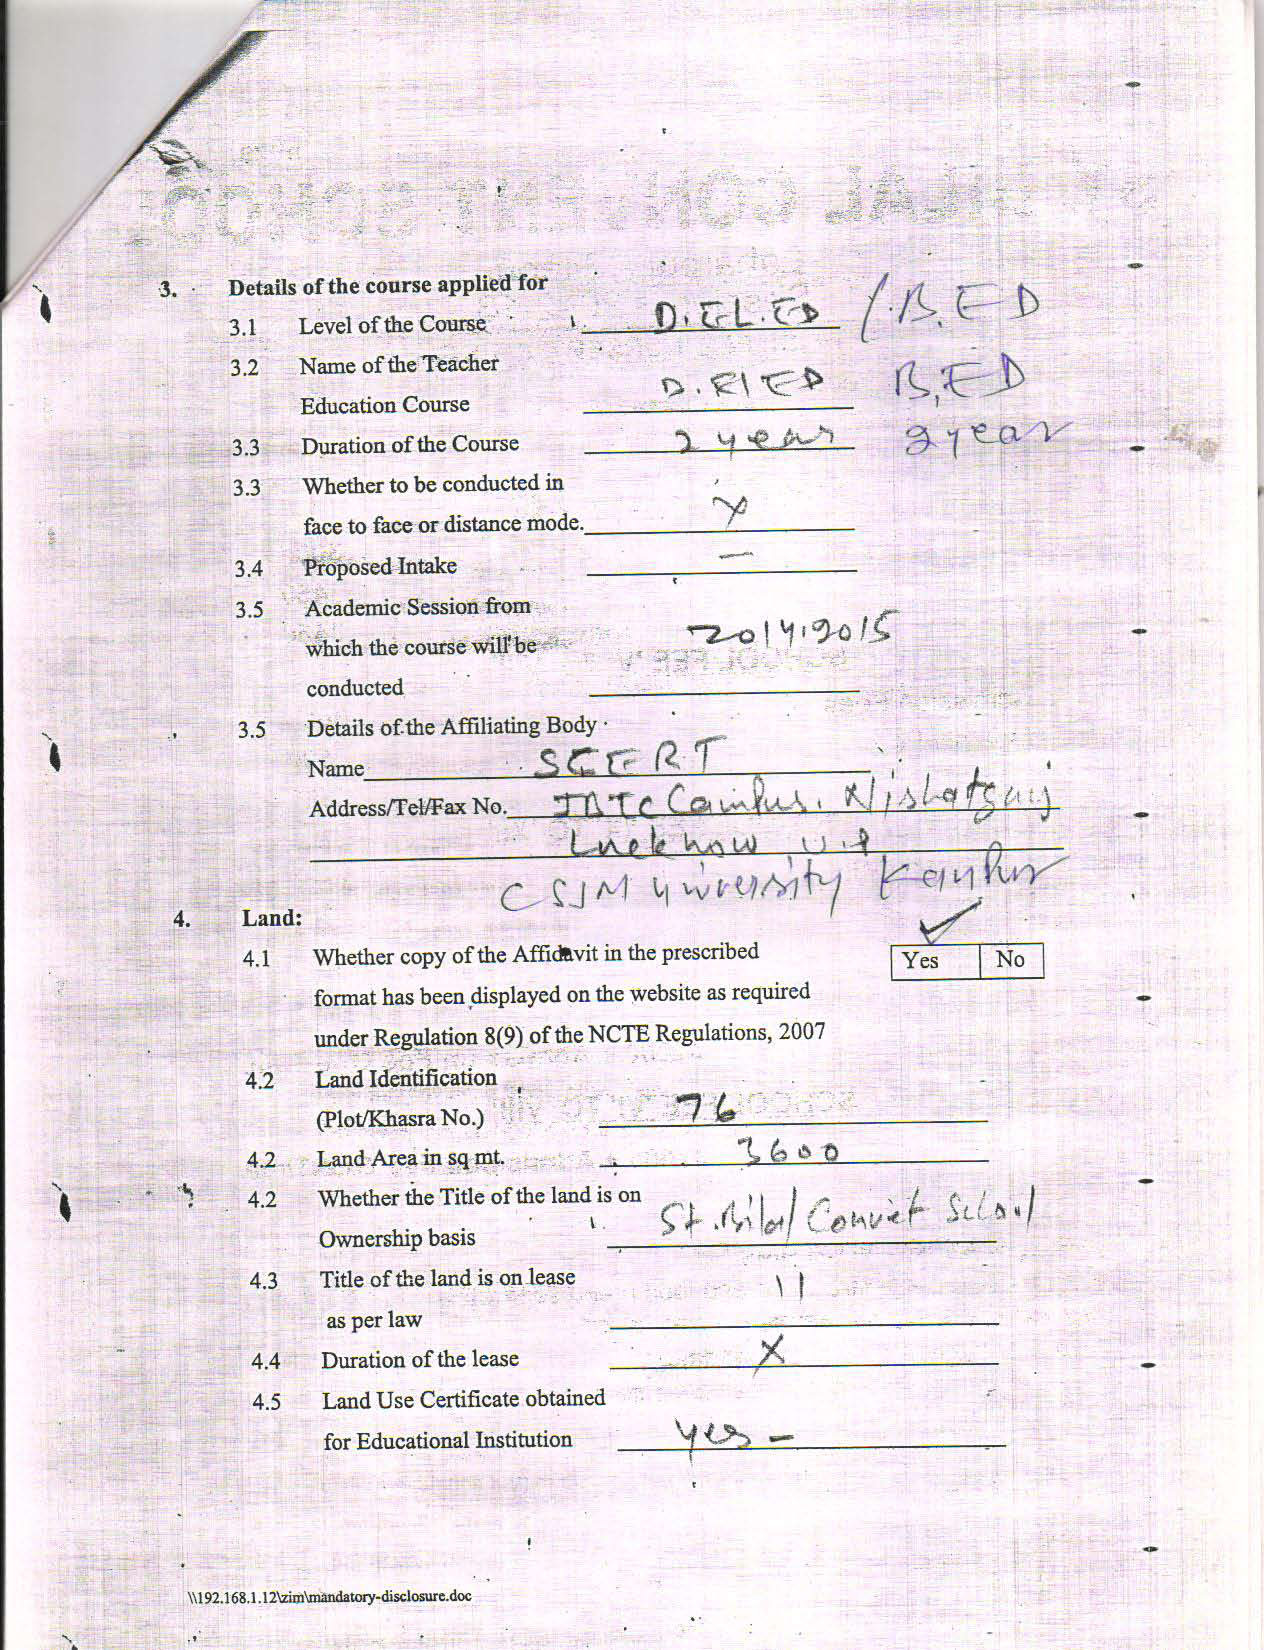 3. Details of the course applied for
3.1 Level of the Course D.EL.ED / B.ED
3.2 Name of the Teacher
Education Course D.ElED B.ED
3.3 Duration of the Course 2 year 2 year
3.3 Whether to be conducted in
face to face or distance mode. X
3.4 Proposed Intake —
3.5 Academic Session from
which the course will be 2014.2015
conducted
3.5 Details of the Affiliating Body
Name SCERT
Address/Tel/Fax No. Campus, Nishatganj
Lucknow U.P
CSJM University Kanpur
4. Land:
4.1 Whether copy of the Affidavit in the prescribed Yes No
format has been displayed on the website as required
under Regulation 8(9) of the NCTE Regulations, 2007
4.2 Land Identification
(Plot/Khasra No.) 76
4.2 Land Area in sq mt. 3600
4.2 Whether the Title of the land is on
Ownership basis St. Bilal Convet School
4.3 Title of the land is on lease 11
as per law
4.4 Duration of the lease X
4.5 Land Use Certificate obtained
for Educational Institution yes -
\\192.168.1.12\zim\mandatory-disclosure.doc